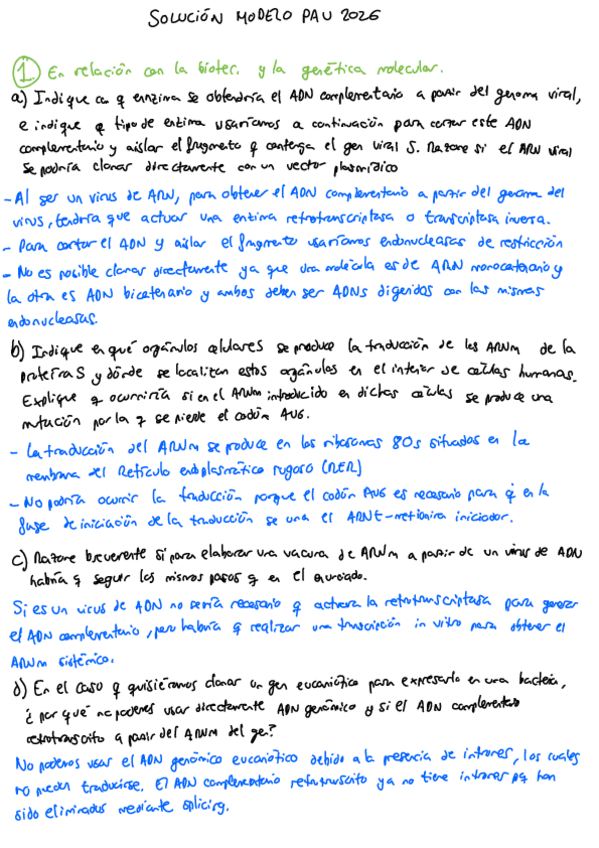 SOLUCIÓN MODELO PAU 2026
1. En relación con la biotec. y la genética molecular.
a) Indique con q enzima se obtendría el ADN complementario a partir del genoma viral,
e indique q tipo de enzima usaríamos a continuación para cortar este ADN
complementario y aislar el fragmento q contenga el gen viral S. Razone si el ARN viral
se podría clonar directamente con un vector plasmídico
- Al ser un virus de ARN, para obtener el ADN complementario a partir del genoma del
virus, tendría que actuar una enzima retrotranscriptasa o transcriptasa inversa.
- Para cortar el ADN y aislar el fragmento usaríamos endonucleasas de restricción
- No es posible clonar directamente ya que una molécula es de ARN monocatenario y
la otra es ADN bicatenario y ambos deben ser ADNs digeridos con las mismas
endonucleasas.
b) Indique en qué orgánulos celulares se produce la traducción de los ARNm de la
proteína S y dónde se localizan estos orgánulos en el interior de células humanas.
Explique q ocurriría si en el ARNm introducido en dichas células se produce una
mutación por la q se pierde el codón AUG.
- La traducción del ARNm se produce en los ribosomas 80s situados en la
membrana del Retículo endoplasmático rugoso (RER)
- No podría ocurrir la traducción porque el codón AUG es necesario para q en la
fase de iniciación de la traducción se una el ARNt-metionina iniciador.
c) Razone brevemente si para elaborar una vacuna de ARNm a partir de un virus de ADN
habría q seguir los mismos pasos q en el enunciado.
Si es un virus de ADN no sería necesario q actuara la retrotranscriptasa para generar
el ADN complementario, pero habría q realizar una transcripción in vitro para obtener el
ARNm sintético.
d) En el caso q quisiéramos clonar un gen eucariótico para expresarlo en una bacteria,
¿por qué no podemos usar directamente ADN genómico y si el ADN complementario
retrotranscrito a partir del ARNm del gen?
No podemos usar el ADN genómico eucariótico debido a la presencia de intrones, los cuales
no pueden traducirse. El ADN complementario retrotranscrito ya no tiene intrones pq han
sido eliminados mediante splicing.